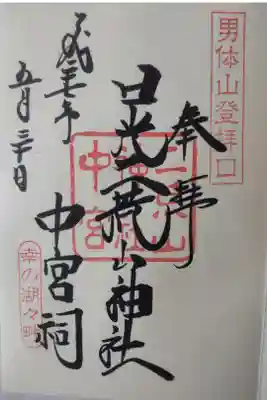 男体山登拝口
奉拝
日光二荒山神社
中宮祠
二荒山
神社
中宮
平成三十年
五月三十日
幸の湖々畔